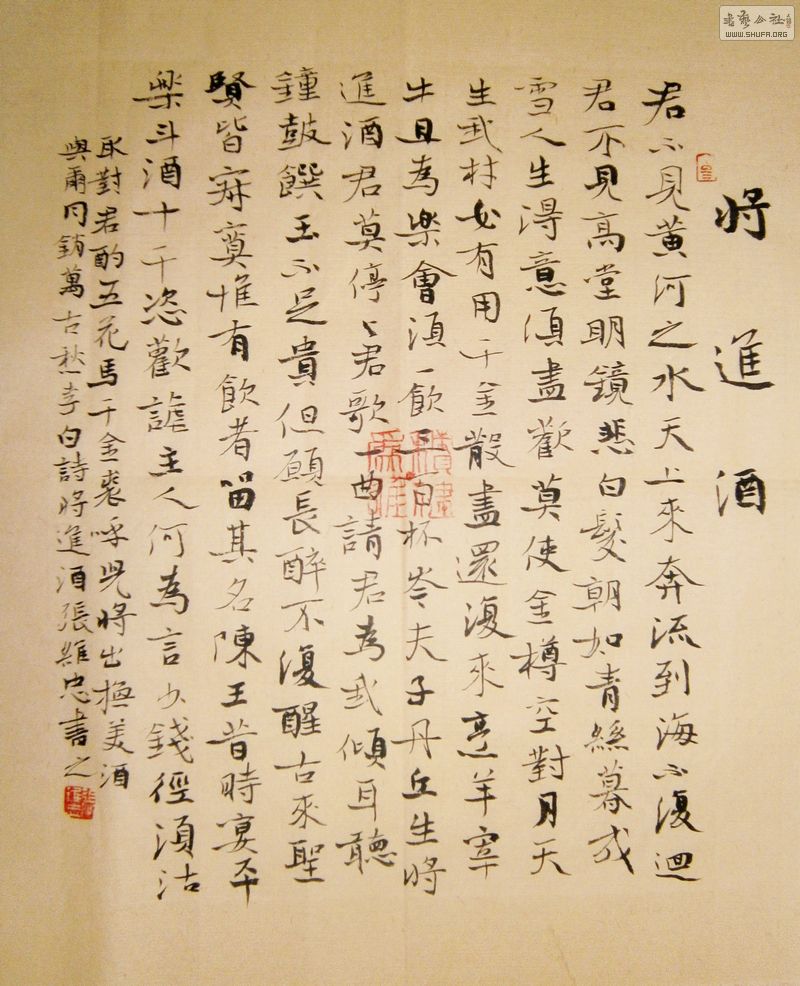 将進酒
君不見黄河之水天上來奔流到海不復迴
君不見高堂明鏡悲白髮朝如青絲暮成
雪人生得意須盡歡莫使金樽空對月天
生我材必有用千金散盡還復來烹羊宰
牛且為樂會須一飲三百杯岑夫子丹丘生將
進酒君莫停々君歌一曲請君為我傾耳聽
鐘鼓饌玉不足貴但願長醉不復醒古來聖
賢皆寂寞惟有飲者留其名陳王昔時宴平
樂斗酒十千恣歡謔主人何為言少錢徑須沽
取對君酌五花馬千金裘呼兒將出換美酒
與爾同銷萬古愁李白詩將進酒張維忠書之
書藝公社
WWW.SHUFA.ORG